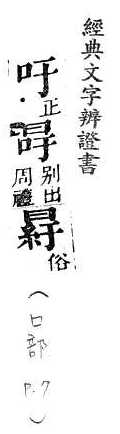 經典文字辨證書
吁正
別出周禮
俗
(口部 P.7)